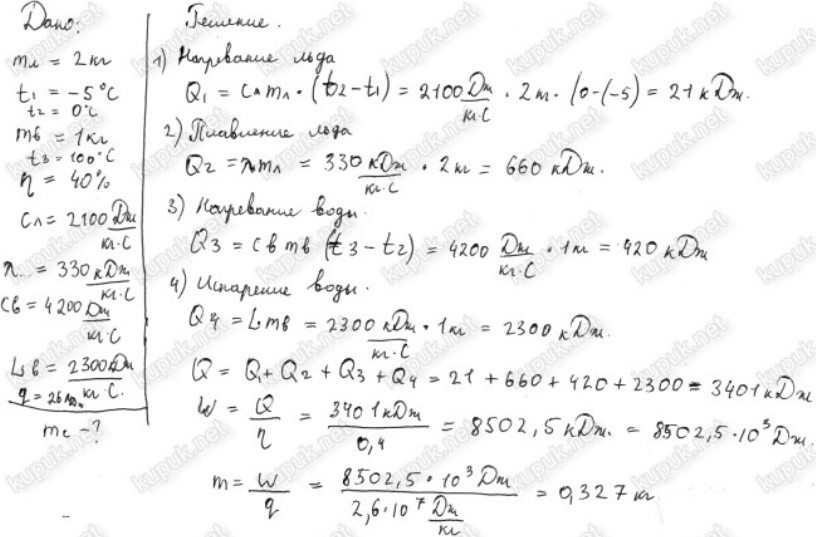 Дано:
mл = 2 кг
t1 = -5°C
t2 = 0°C
mв = 1 кг
t3 = 100°C
η = 40%
Cл = 2100 Дж/кг·C
λ = 330 кДж/кг·C
Cв = 4200 Дж/кг·C
Lв = 2300 кДж/кг·C.
mc - ?
Решение.
1) Нагревание льда
Q1 = Cл mл · (t2 - t1) = 2100 Дж/кг·C · 2 кг · (0 - (-5) = 21 кДж.
2) Плавление льда
Q2 = λ mл = 330 кДж/кг·C · 2 кг = 660 кДж.
3) Нагревание воды.
Q3 = Cв mв (t3 - t2) = 4200 Дж/кг·C · 1 кг = 420 кДж
4) Испарение воды.
Q4 = L mв = 2300 кДж/кг·C · 1 кг = 2300 кДж.
Q = Q1 + Q2 + Q3 + Q4 = 21 + 660 + 420 + 2300 = 3401 кДж
W = Q/η = 3401 кДж/0,4 = 8502,5 кДж. = 8502,5 · 10³ Дж.
m = W/q = 8502,5 · 10³ Дж/2,6 · 10⁷ Дж/кг = 0,327 кг
kupuk.net